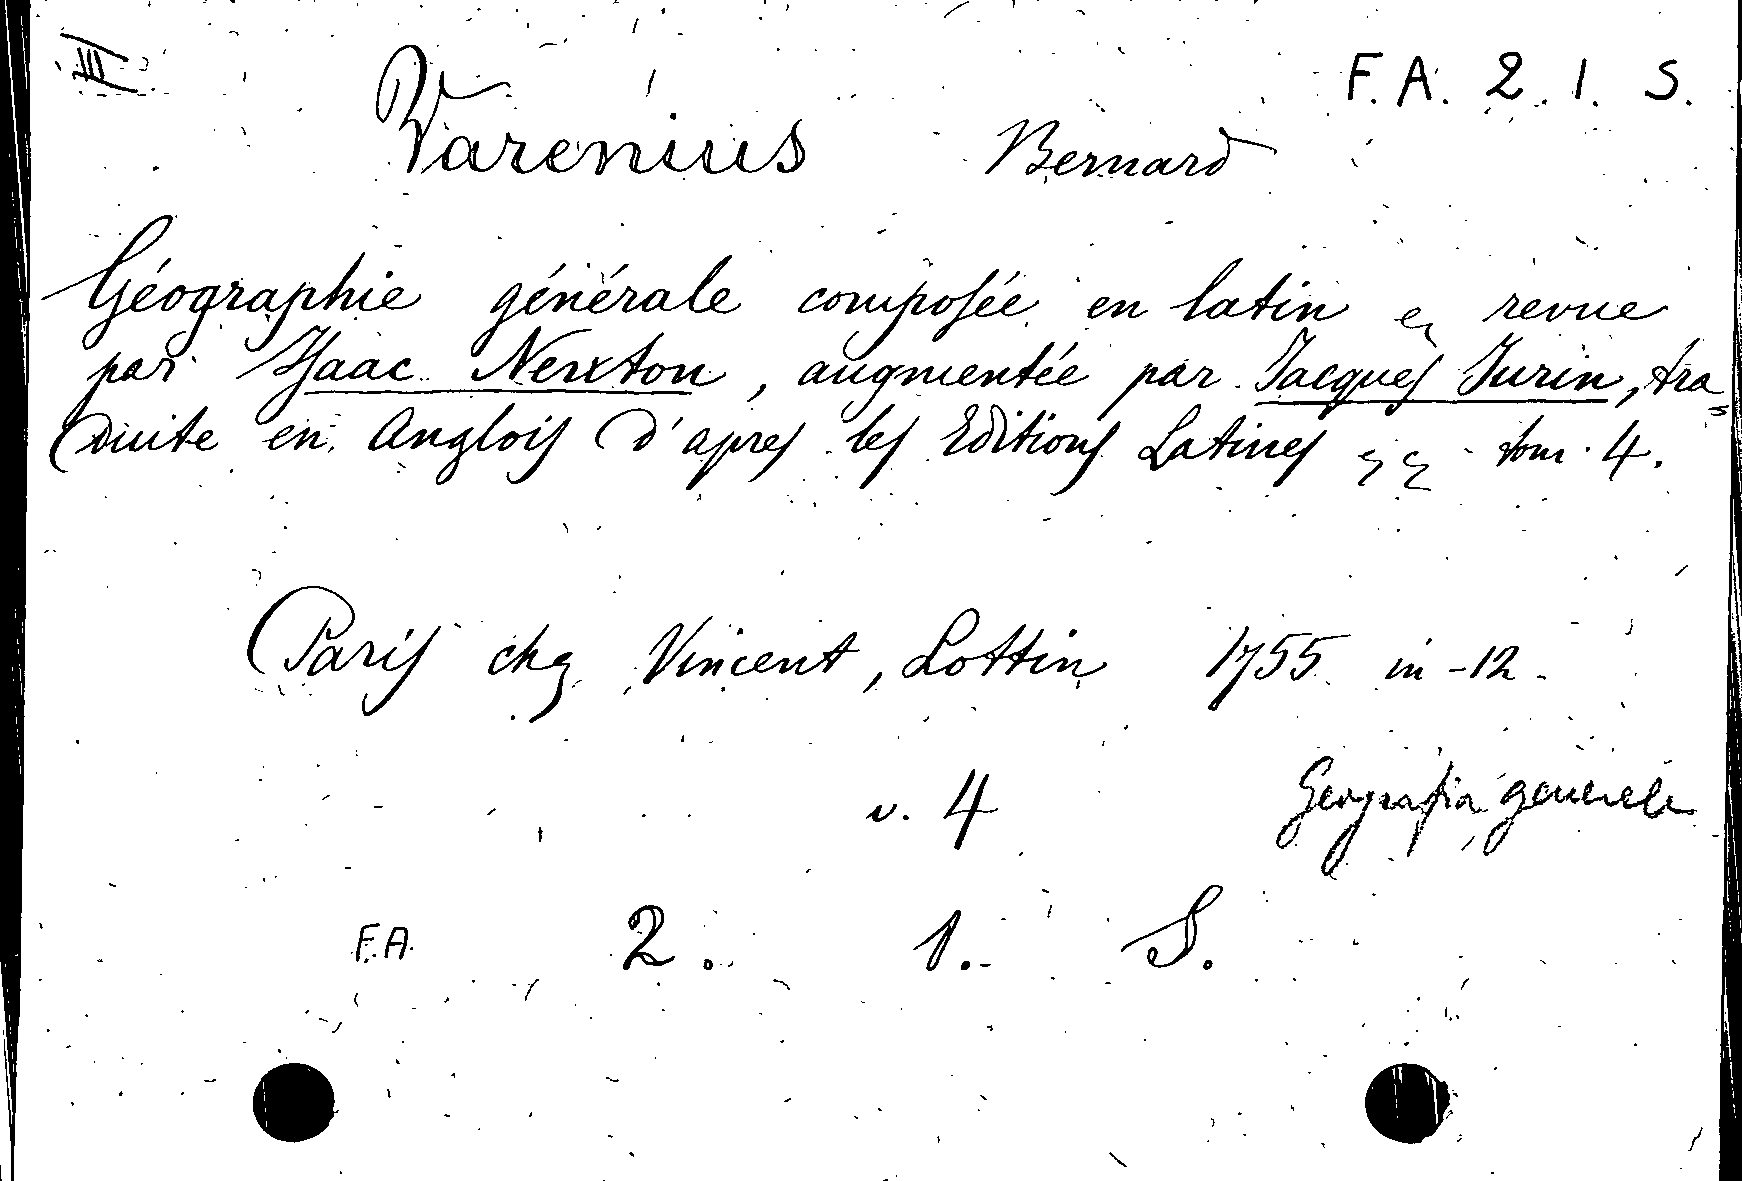 III
F. A. 2. 1. S.
Varenius Bernard
Géographie générale composée en latin & revue
par Isaac Newton, augmentée par Jacques Jurin, tra=
duite en Anglois d'apres les Editions Latines && tom. 4.
Paris chez Vincent, Lottin 1755 in-12.
v. 4
Geografia generale
F.A. 2. 1. S.